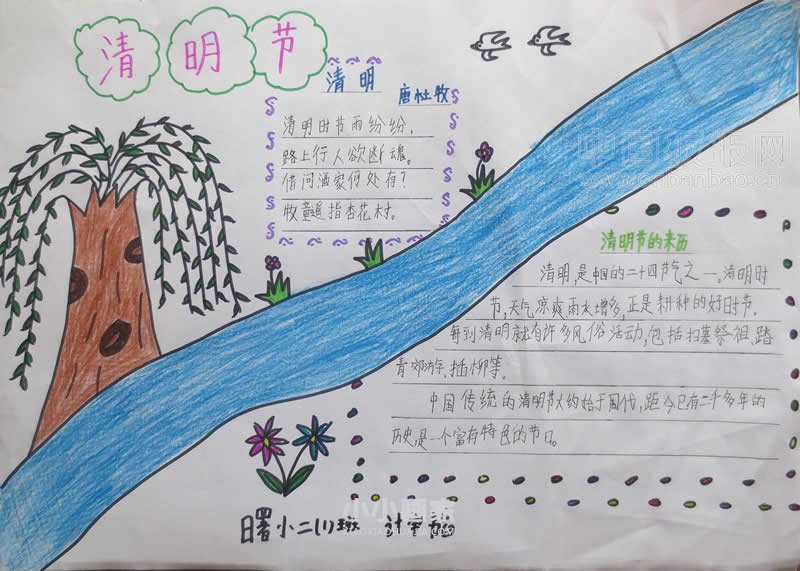 清明节
清明
唐杜牧
清明时节雨纷纷，
路上行人欲断魂。
借问酒家何处有？
牧童遥指杏花村。
中国板报网
清明节的来历
清明，是中国的二十四节气之一。清明时
节，天气凉爽雨水增多，正是耕种的好时节。
每到清明就有许多风俗活动，包括扫墓祭祖、踏
青郊游、插柳等。
中国传统的清明节大约始于周代，距今已有二千多年的
历史，是一个富有特色的节日。
小小画家
XIAOXIAOHUAJIA.COM
日署小二(1)班